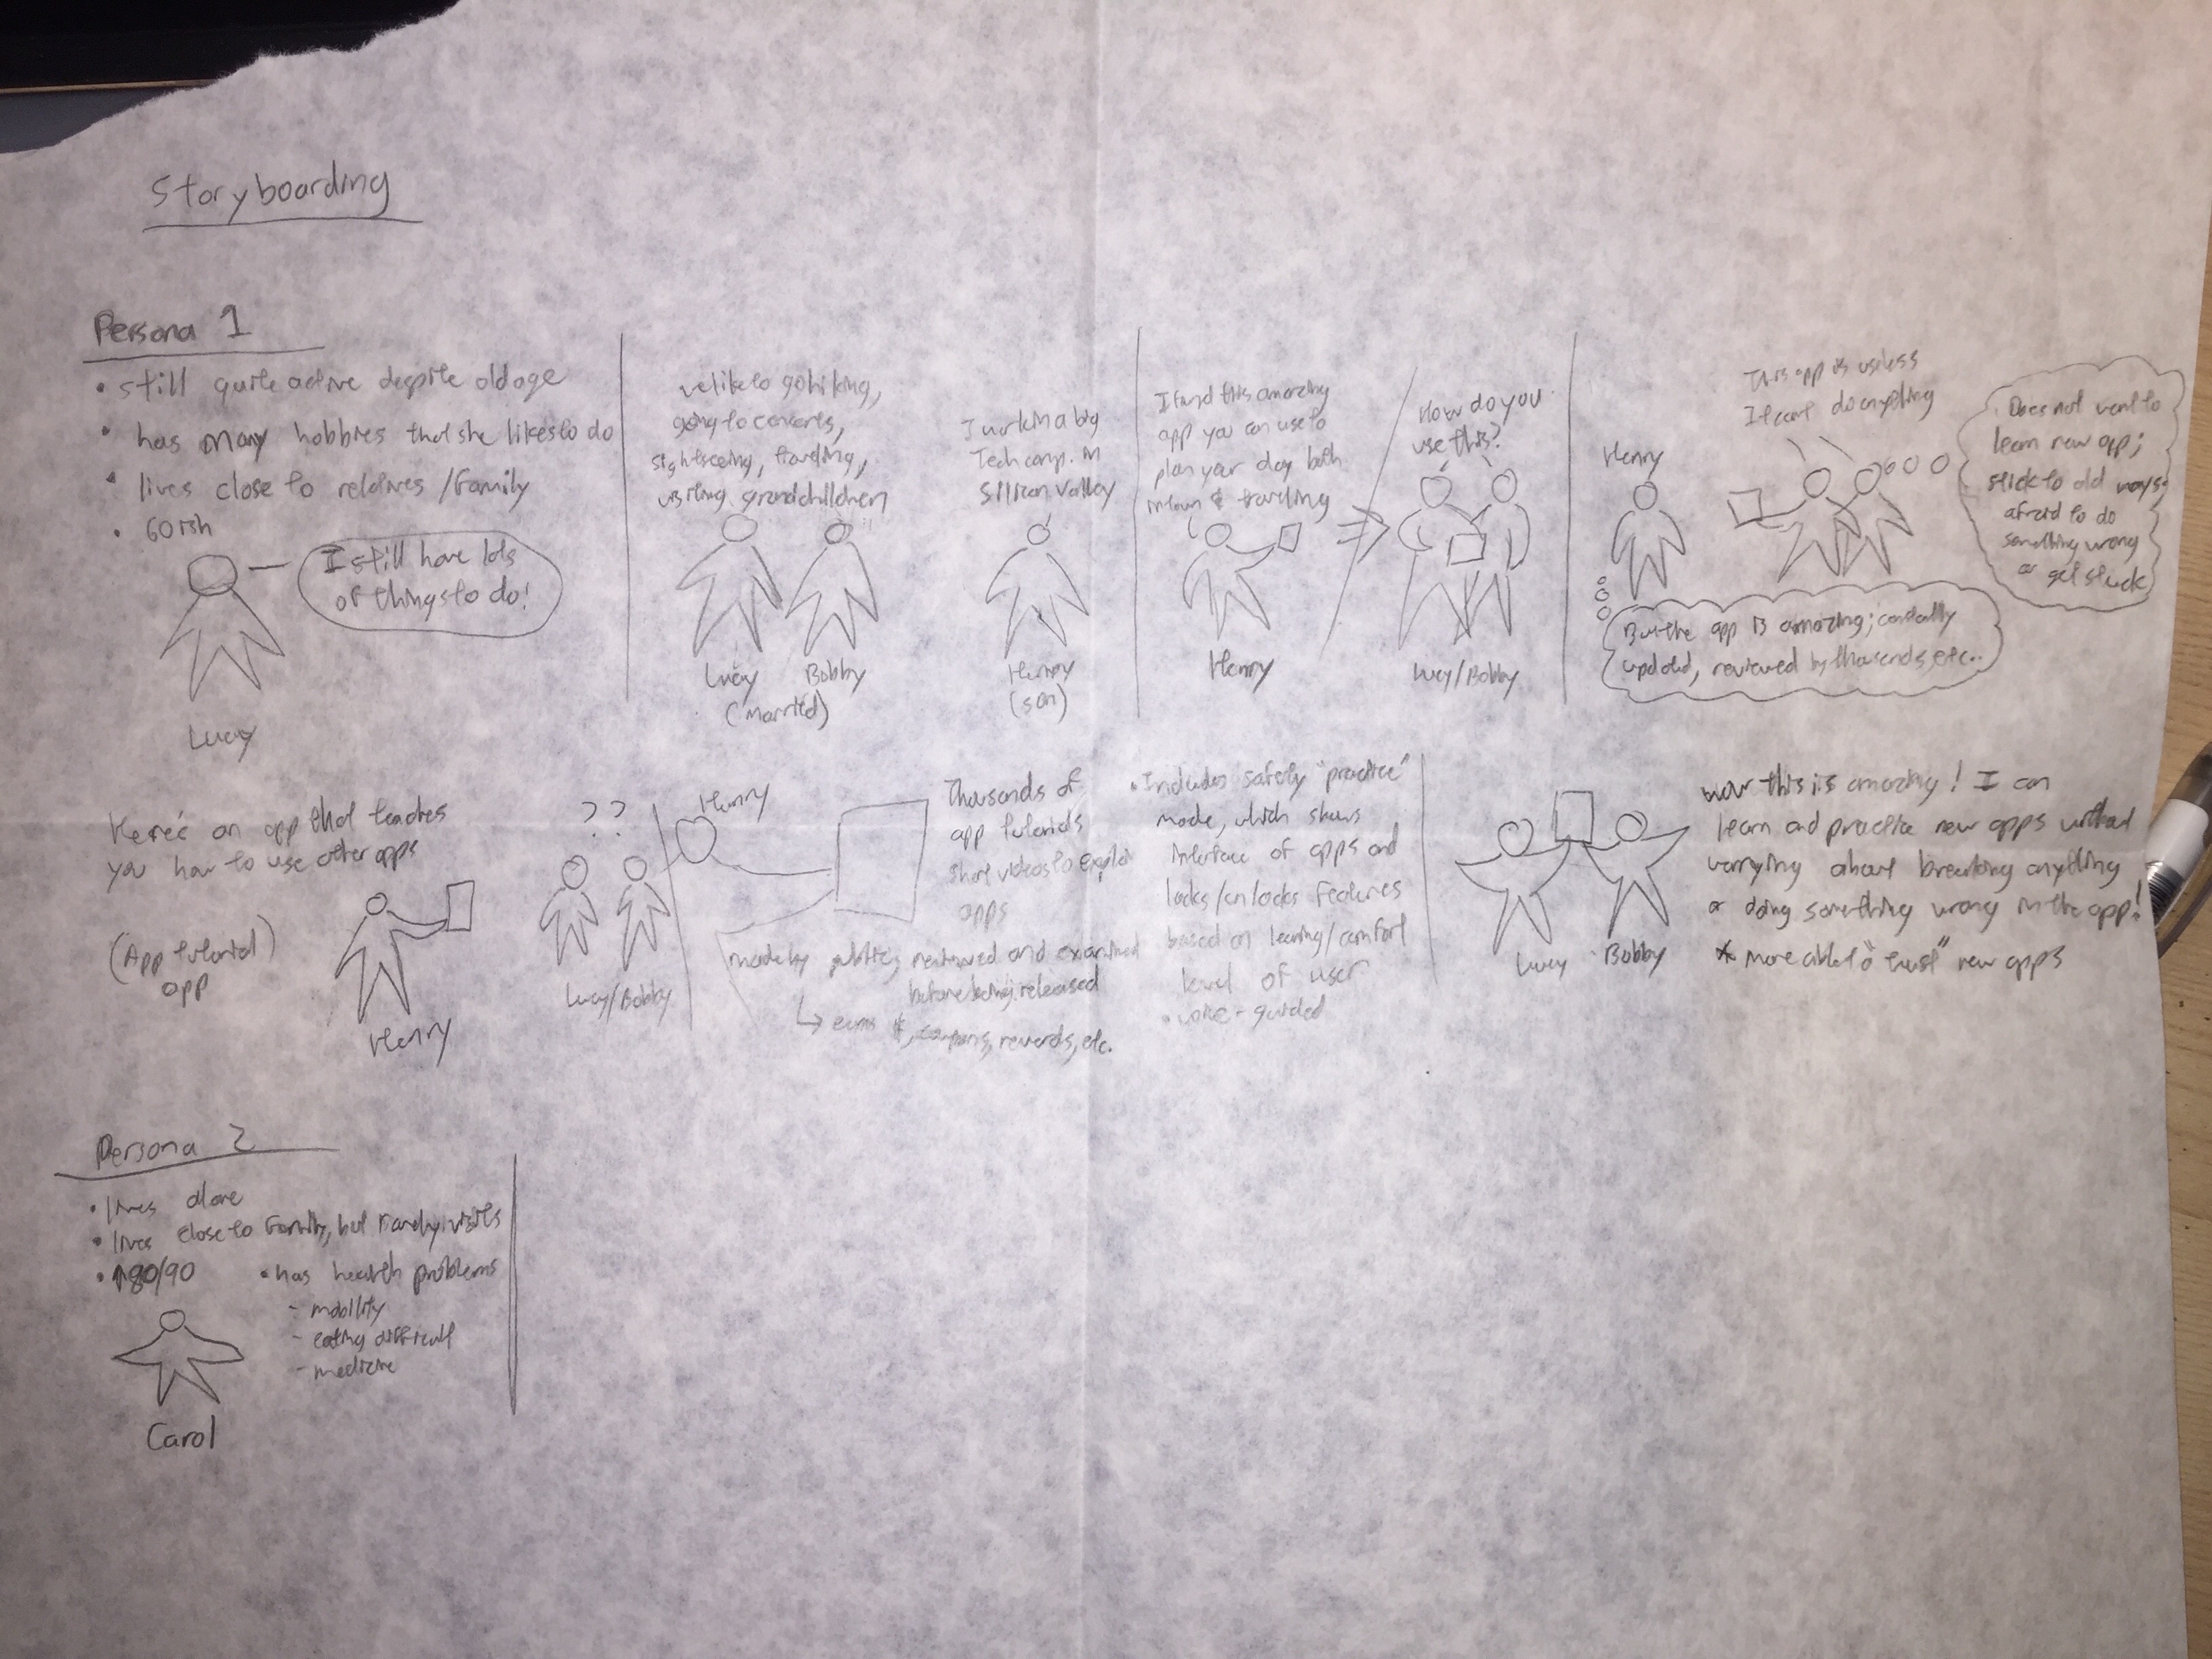 Storyboarding
Persona 1
• still quite active despite old age
• has many hobbies that she likes to do
• lives close to relatives / family
• 60ish
I still have lots
of things to do!
Lucy
We like to go hiking,
going to concerts,
sightseeing, traveling,
visiting grandchildren
Lucy
Bobby
(married)
I work in a big
Tech comp. in
Silicon Valley
Henry
(son)
I found this amazing
app you can use to
plan your day both
in town & traveling
Henry
How do you
use this?
Lucy/Bobby
Henry
This app is useless
I can't do anything
Does not want to
learn new app;
stick to old ways;
afraid to do
something wrong
or get stuck
But the app is amazing; constantly
updated, reviewed by thousands, etc..
Here's an app that teaches
you how to use other apps
(App tutorial)
app
Henry
??
Lucy/Bobby
Henry
Thousands of
app tutorials
short videos to explain
apps
made by public, reviewed and examined
before being released
↳ earns $, coupons, rewards, etc.
• Includes safety "practice"
mode, which shows
interface of apps and
locks/unlocks features
based on learning/comfort
level of user
• voice-guided
Lucy
Bobby
wow this is amazing! I can
learn and practice new apps without
worrying about breaking anything
or doing something wrong in the app!
* more able to "trust" new apps
Persona 2
• lives alone
• lives close to family, but rarely visits
• 80/90
• has health problems
- mobility
- eating difficult
- medicine
Carol